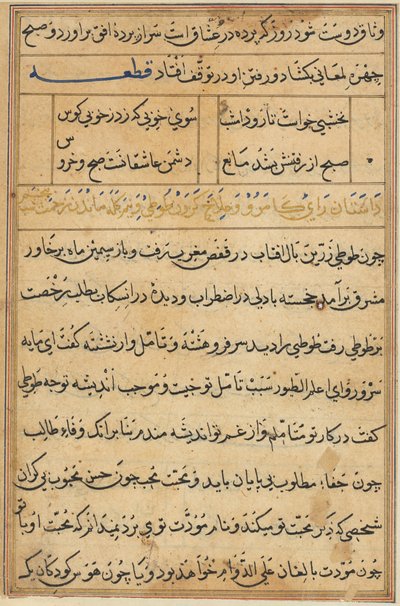 وثاق دوست شود روز که پرده در عشاق است سر از پردهٔ افق براورد و صبح
چهره لمعانی بکشاد و رفتن او در توقف افتاد قطعه
نخشبی خواست تا رود امشب سوی خوبی که زد در خوبی کوس
صبح از رفتنش ببند مانع دشمن عاشقانست صبح و خروس
داستان رای کامرو و
چون طوطی زرین بال افتاب در قفص مغرب رفت و باز سیمین ماه بر خاور
مشرق برآمد خجسته با دلی در اضطراب و دیدهٔ در انسکاب بطلب رخصت
بر طوطی رفت طوطی را دید سر فرو هشته و تامل وار نشسته گفت ای مایه
سرور و ای اعلم الطیور سبب تامل تو چیست و موجب اندیشه تو چه طوطی
گفت در کار تو متاملم و از غم تو اندیشه مندم زیرا برانک وفاء طالب
چون جفاء مطلوب بی پایان باید و محبت محب چون حسن محبوب بی کران
شخصی که ذکر محبت تو میکنند و نام مودت توی برد نمیدانم که محبت او با تو
چون مودت بالغان علی الدوام خواهد بود و یا چون هوس کودکان یک